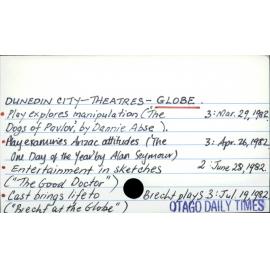 DUNEDIN CITY—THEATRES—GLOBE.
• Play explores manipulation ("The 3: Mar. 29, 1982.
Dogs of Pavlov", by Dannie Abse).
• Play examines Anzac attitudes ("The 3: Apr. 26, 1982.
One Day of the Year" by Alan Seymour)
• Entertainment in sketches 2: June 28, 1982.
("The Good Doctor")
• Cast brings life to Brecht plays 3: Jul 19 1982.
("Brecht at the Globe") OTAGO DAILY TIMES